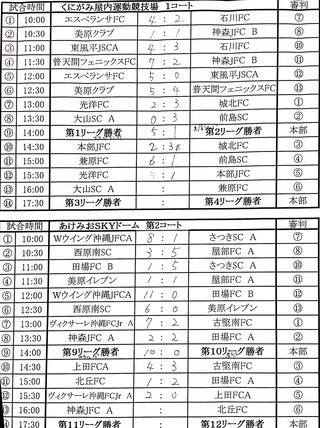 試合時間 くにがみ屋内運動競技場 1コート 審判
① 10:00 エスペランサFC 4 : 2 石川FC ⑦
② 10:30 美原クラブ 1 : 1 神森JFC B ⑧
③ 11:00 東風平JSCA 4 : 3 石川FC ①
④ 11:30 普天間フェニックスFC 7 : 2 神森JFC B ②
⑤ 12:00 エスペランサFC 5 : 0 東風平JSCA ⑫
⑥ 12:30 美原クラブ 5 : 4 普天間フェニックスFC ⑬
⑦ 13:00 光洋FC 2 : 3 城北FC ①
⑧ 13:30 大山SC A 0 : 3 前島SC ②
⑨ 14:00 第1リーグ勝者 5 : 1 第2リーグ勝者 本部
⑩ 14:30 本部JFC 2 : 3 城北FC ③
⑪ 15:00 兼原FC 6 : 1 前島SC ④
⑫ 15:30 光洋FC : 1 本部JFC ⑤
⑬ 16:00 大山SC A : 兼原FC ⑥
⑭ 17:30 第3リーグ勝者 : 第4リーグ勝者 本部
試合時間 あけみおSKYドーム 第2コート 審判
① 10:00 Wウイング沖縄JFCA 8 : 1 さつきSC A ⑦
② 10:30 西原南SC 3 : 5 屋部FC A ⑧
③ 11:00 田場FC B 1 : 5 さつきSC A ⑩
④ 11:30 美原イレブン 1 : 1 屋部FC A ⑪
⑤ 12:00 Wウイング沖縄JFCA 11 : 0 田場FC B ⑫
⑥ 12:30 西原南SC 6 : 0 美原イレブン ⑬
⑦ 13:00 ヴィクサーレ沖縄FCJr A 7 : 2 古堅南FC ①
⑧ 13:30 神森JFC A 2 : 2 田場FC A ②
⑨ 14:00 第9リーグ勝者 10 : 0 第10リーグ勝者 本部
⑩ 14:30 上田FCA 4 : 3 古堅南FC ③
⑪ 15:00 北丘FC 1 : 2 田場FC A ④
⑫ 15:30 ヴィクサーレ沖縄FCJr A 2 : 0 上田FCA ⑤
⑬ 16:00 神森JFC A : 北丘FC ⑥
⑭ 17:30 第11リーグ勝者 : 第12リーグ勝者 本部